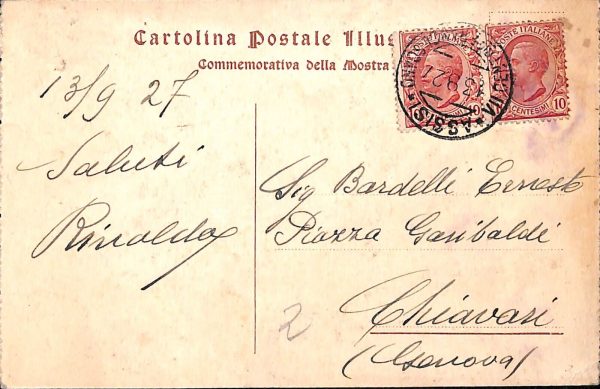 Cartolina Postale Illus
Commemorativa della Mostra
POSTE ITALIANE
CENTESIMI 10
ASSISI
13/9 27
Saluti
Rinaldo
Sig Bardelli Ernesto
Piazza Garibaldi
Chiavari
(Genova)
2